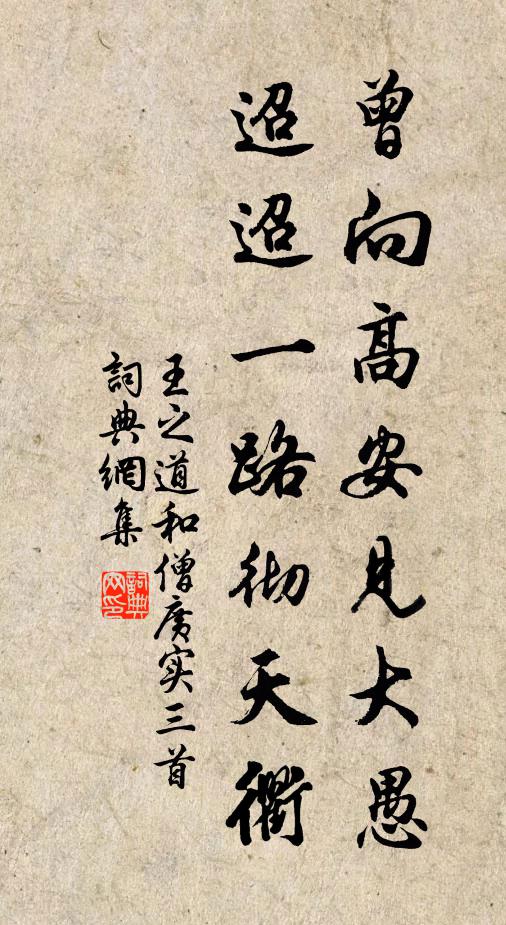 曾向高安見大愚
迢迢一路彻天衢
王之道和僧广实三首
詞典網集
詞典网印